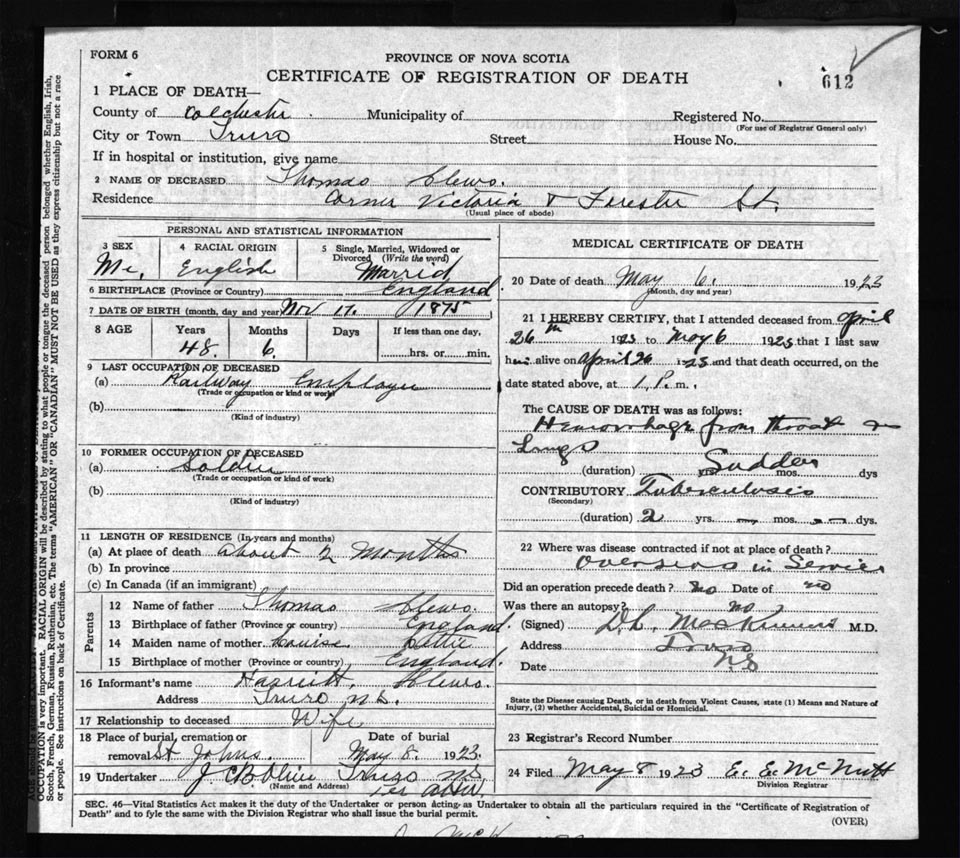 FORM 6
PROVINCE OF NOVA SCOTIA
CERTIFICATE OF REGISTRATION OF DEATH
612
1 PLACE OF DEATH—
County of Colchester Municipality of Registered No.
(For use of Registrar General only)
City or Town Truro Street House No.
If in hospital or institution, give name
2 NAME OF DECEASED Thomas Clews.
Residence Corner Victoria & Forester St.
(Usual place of abode)
PERSONAL AND STATISTICAL INFORMATION
3 SEX 4 RACIAL ORIGIN 5 Single, Married, Widowed or Divorced (Write the word)
English Married
6 BIRTHPLACE (Province or Country) England
7 DATE OF BIRTH (month, day and year) Nov 17. 1875
8 AGE Years Months Days If less than one day,
48. 6. hrs. or min.
9 LAST OCCUPATION OF DECEASED
(a) Railway Employee
(Trade or occupation or kind of work)
(b)
(Kind of industry)
10 FORMER OCCUPATION OF DECEASED
(a) Soldier
(Trade or occupation or kind of work)
(b)
(Kind of industry)
11 LENGTH OF RESIDENCE (In years and months)
(a) At place of death about 2 months
(b) In province
(c) In Canada (if an immigrant)
Parents
12 Name of father Thomas Clews.
13 Birthplace of father (Province or country) England.
14 Maiden name of mother Louise
15 Birthplace of mother (Province or country) England.
16 Informant's name Harriett Clews.
Address Truro N.S.
17 Relationship to deceased Wife
18 Place of burial, cremation or removal St Johns. Date of burial May 8. 1923.
19 Undertaker Truro N.S.
(Name and Address)
MEDICAL CERTIFICATE OF DEATH
20 Date of death May 6. 1923
(Month, day and year)
21 I HEREBY CERTIFY, that I attended deceased from April
26th 1923 to May 6 1923 that I last saw
him alive on April 26 1923 and that death occurred, on the
date stated above, at 1 P. m.
The CAUSE OF DEATH was as follows:
Hemorrhage from throat or
Lungs
(duration) yrs. Sudden mos. dys
CONTRIBUTORY Tuberculosis
(Secondary)
(duration) 2 yrs. — mos. — dys.
22 Where was disease contracted if not at place of death?
Overseas in Service
Did an operation precede death? No Date of no
Was there an autopsy? no
(Signed) D.L. M.D.
Address Truro
N.S
Date
State the Disease causing Death, or in death from Violent Causes, state (1) Means and Nature of Injury, (2) whether Accidental, Suicidal or Homicidal.
23 Registrar's Record Number
24 Filed May 8 1923 E. E. McNutt
Division Registrar
SEC. 46—Vital Statistics Act makes it the duty of the Undertaker or person acting as Undertaker to obtain all the particulars required in the "Certificate of Registration of
Death" and to fyle the same with the Division Registrar who shall issue the burial permit.
(OVER)
OCCUPATION is very important. RACIAL ORIGIN will be described by stating to what people or tongue the deceased person belonged whether English, Irish,
Scotch, French, German, Russian, Ruthenian, etc. The terms "AMERICAN" OR "CANADIAN" MUST NOT BE USED as they express citizenship but not a race
or people. See instructions on back of Certificate.